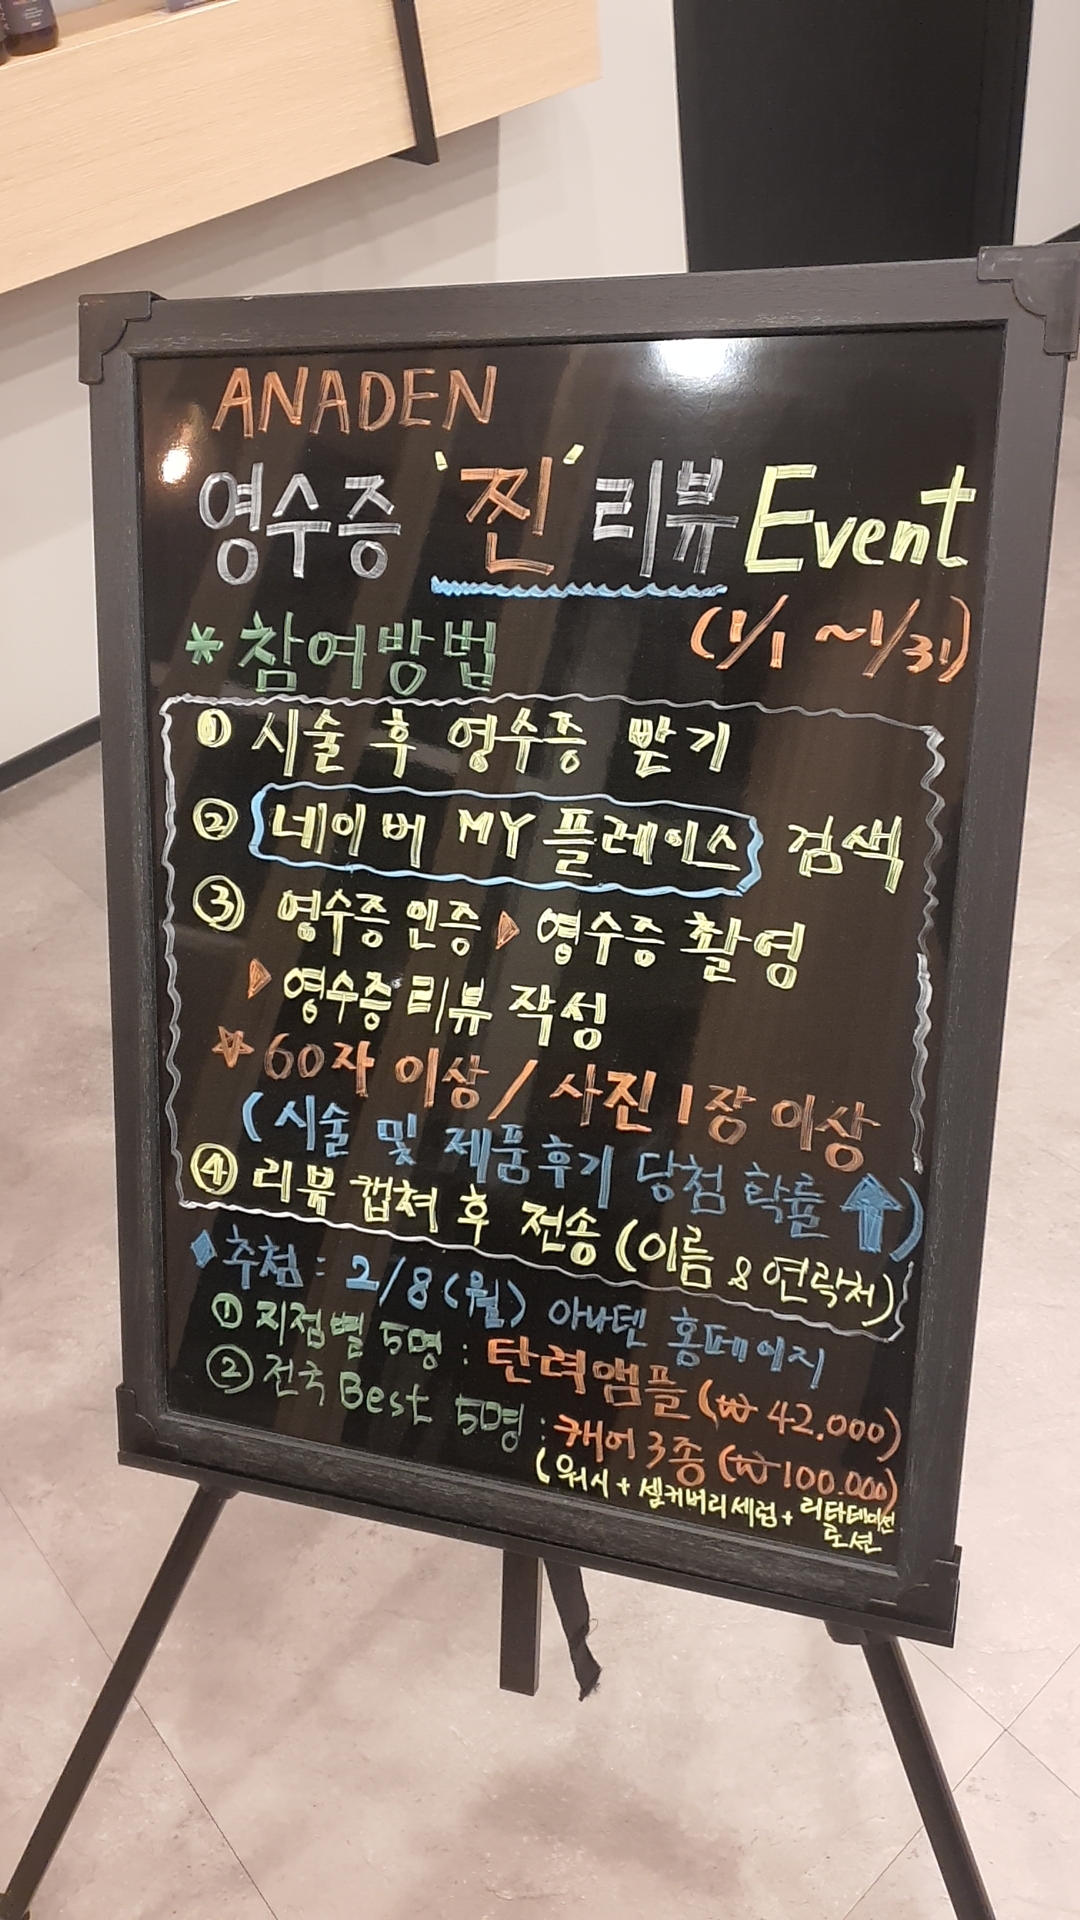 ANADEN
영수증 '찐' 리뷰 Event
(1/1 ~ 1/31)
* 참여방법
① 시술 후 영수증 받기
② 네이버 MY 플레이스 검색
③ 영수증 인증 ▶ 영수증 촬영
▶ 영수증 리뷰 작성
☆ 60자 이상 / 사진 1장 이상
(시술 및 제품후기 당첨 확률 ⬆)
④ 리뷰 캡쳐 후 전송 (이름 & 연락처)
◆ 추첨 : 2/8 (월) 아나덴 홈페이지
① 지점별 5명 : 탄력앰플 (₩ 42.000)
② 전국 Best 5명 : 케어 3종 (₩ 100.000)
(워시 + 셀커버리세럼 + 리타데이션
로션